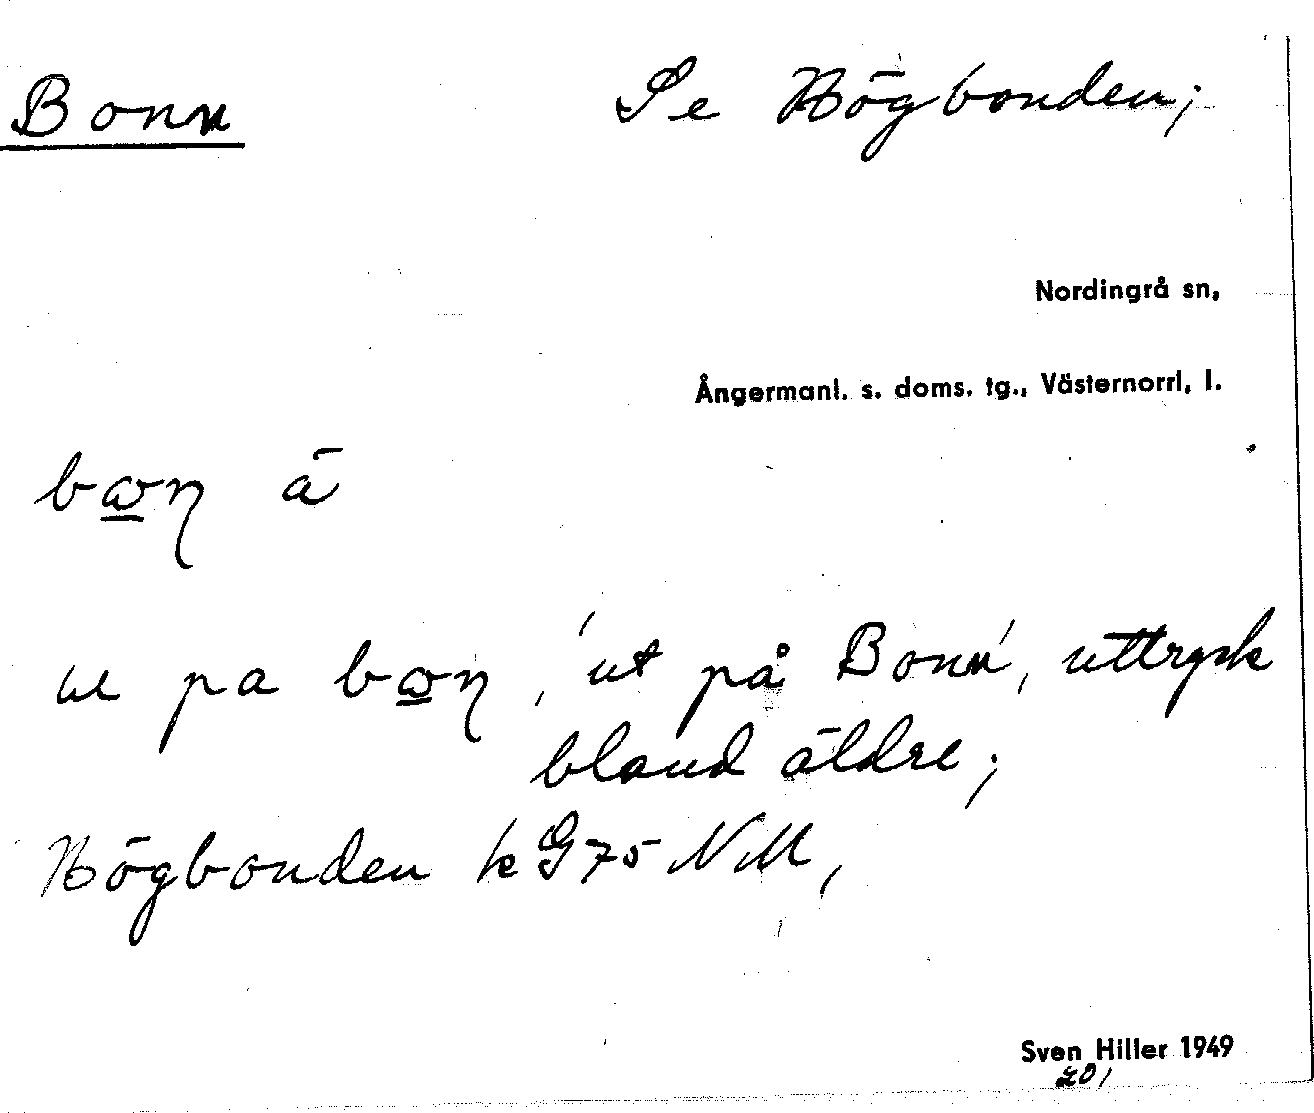 Bonn
Se Högbonden;
Nordingrå sn,
Ångermanl. s. doms. tg., Västernorrl. l.
ā
pa 'ut på Bonn', uttryck
bland äldre;
Högbonden k G75 NM,
Sven Hiller 1949